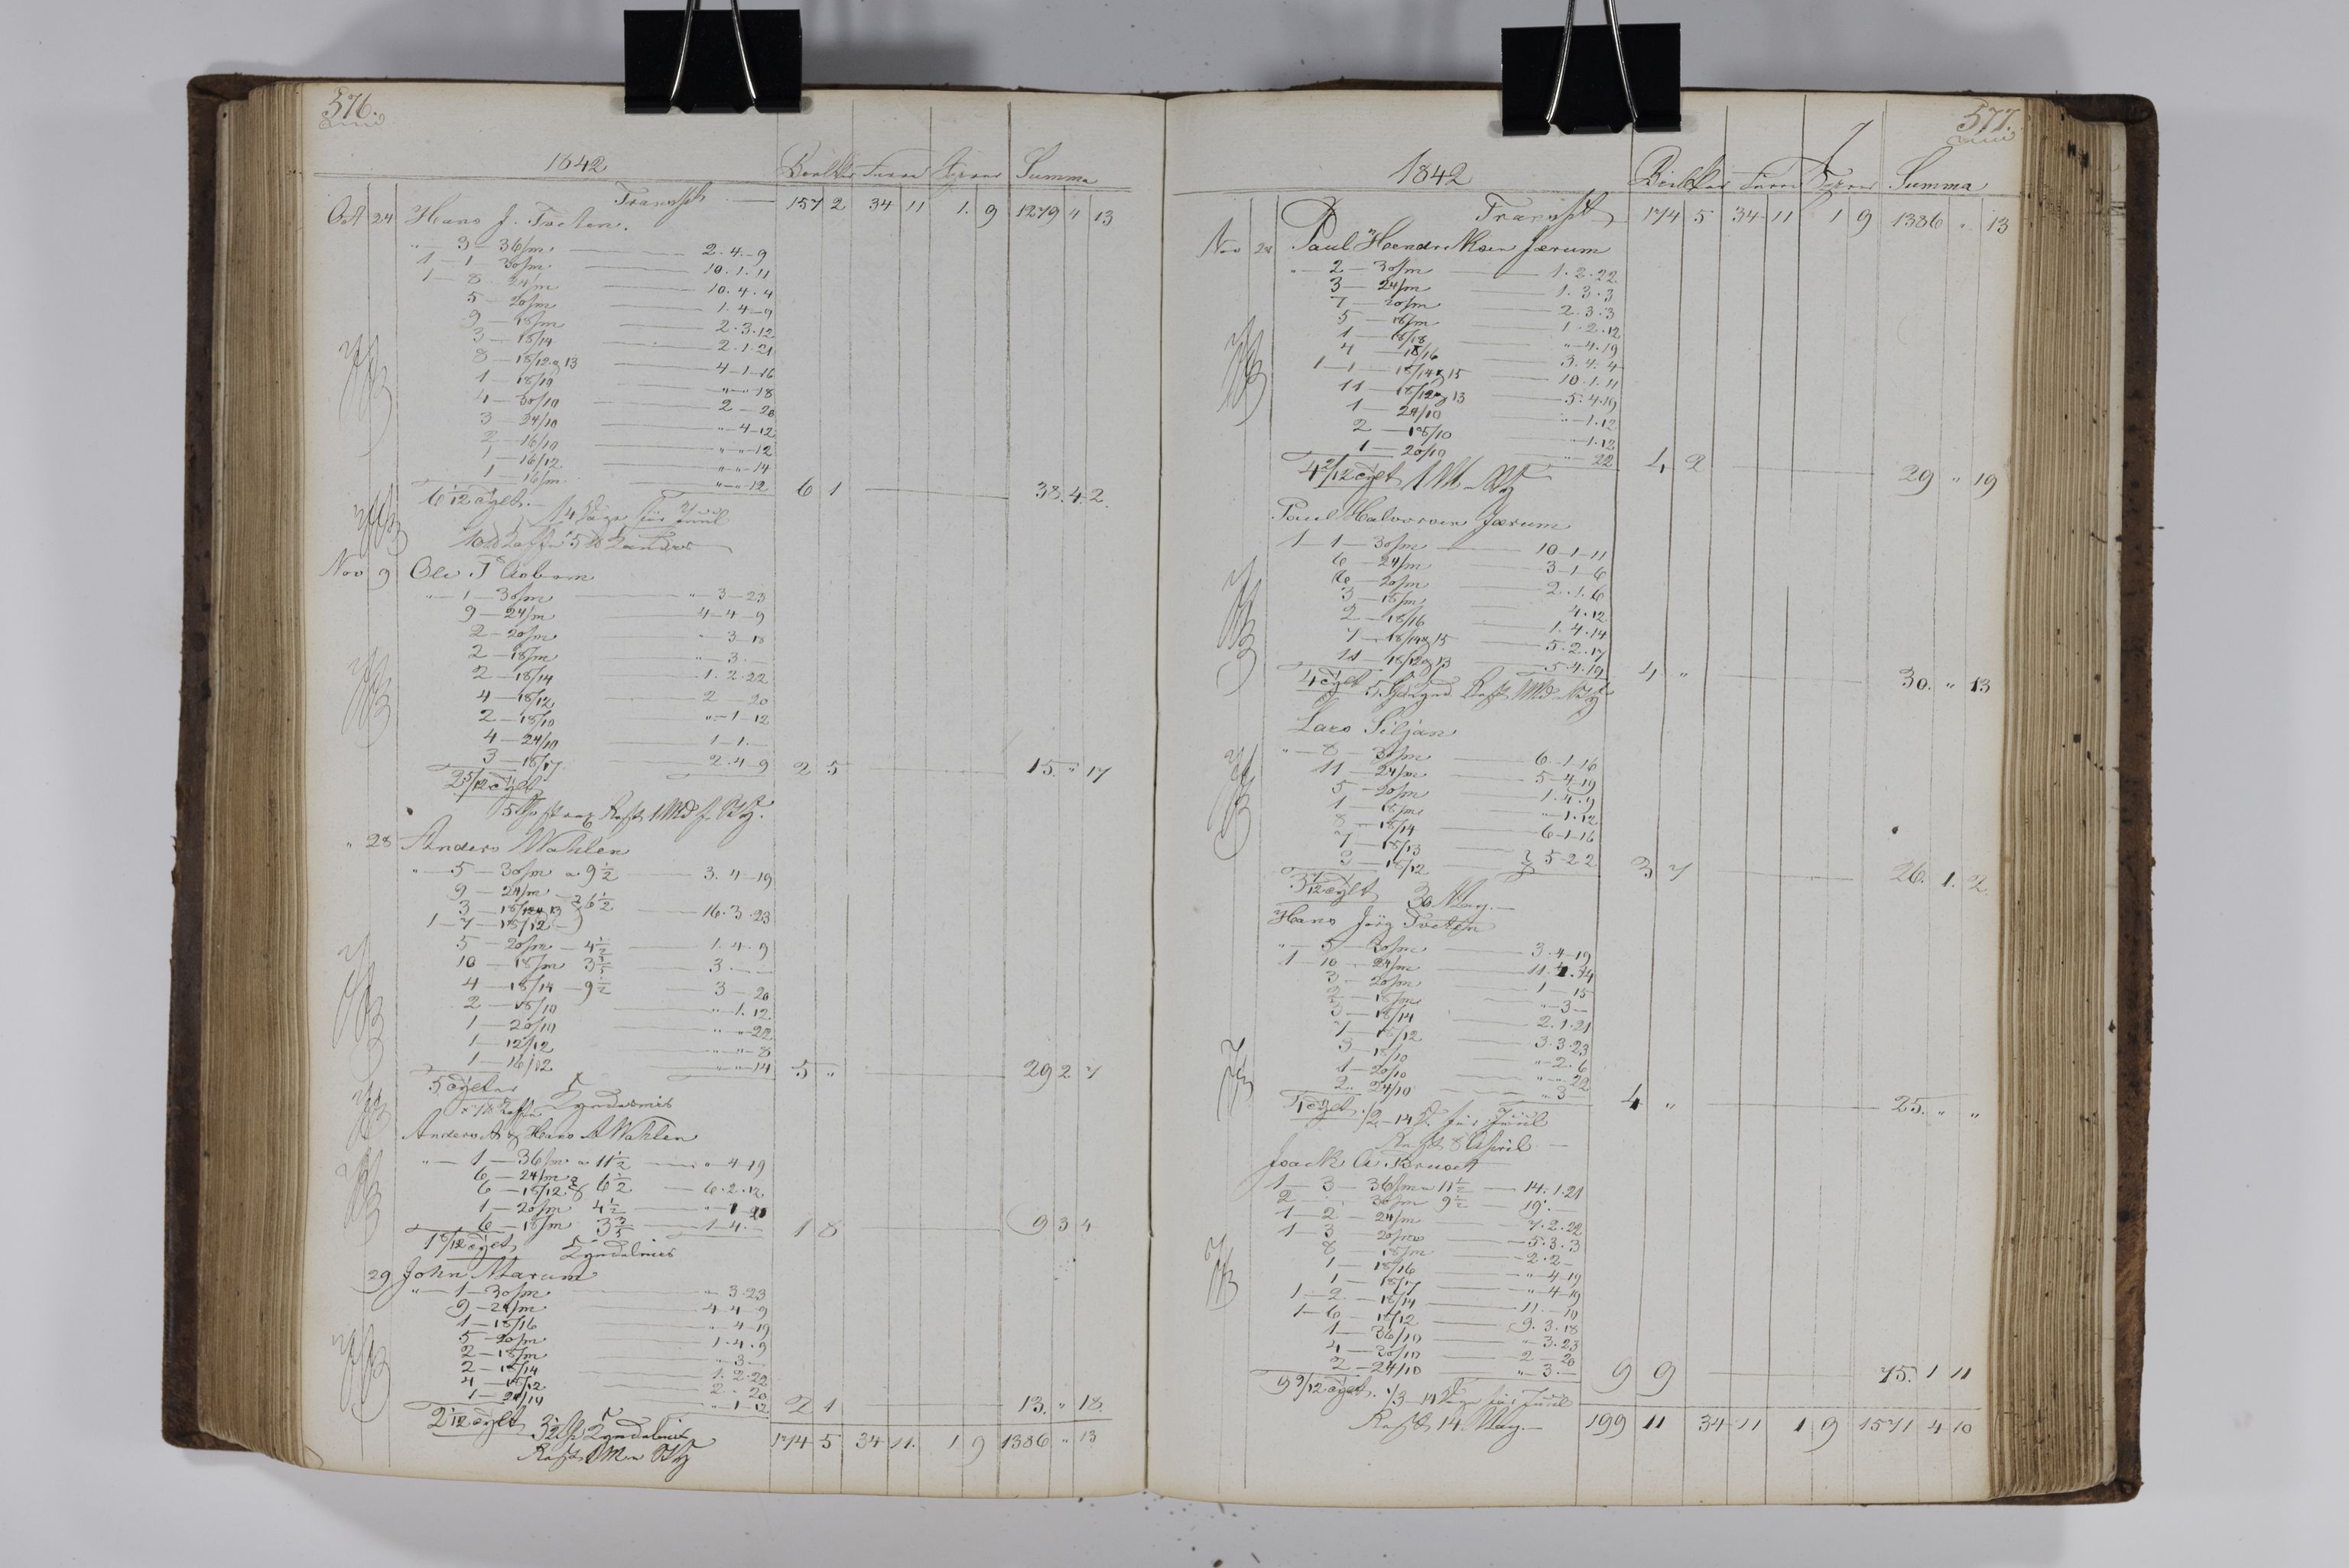 576.
1842 Summa
Transpt — 157 2 34 11 1. 9 1279 4 13
Oct 24 Hans J. Tveten.
" — 3 — 36/m — 2. 4 — 9
1 — 1 — 30/m — 10. 1. 11
1 — 8 — 24/m — 10. 4. 4
5 — 20/m — 1. 4 — 9
9 — 18/m — 2. 3. 12
3 — 18/14 — 2. 1. 21
8 — 18/12 og 13 — 4 — 1 — 16
1 — 18/10 — " — " — 18
4 — 30/10 — 2 — 20
3 — 24/10 — " — 4 — 12
2 — 16/10 — " — " — 12
1 — 16/12 — " — " — 14
1 — 16/m — " — " — 12 6 1 — 38. 4. 2.
6 1/12 cylt.
14 Dage før Juul
Nov 9 Ole T
" — 1 — 30/m — " — 3 — 23
9 — 24/m — 4 — 4 — 9
2 — 20/m — " — 3 — 18
2 — 18/m — " — 3. —
2 — 18/14 — 1. 2. 22
4 — 18/12 — 2 — 20
2 — 18/10 — " — 1 — 12
4 — 24/10 — 1 — 1. —
3 — 18/17 — 2. 4 — 9 2 5 — 15. " 17
2 5/12 cylt
" 28 Anders Wahlen
" — 5 — 30/m a 9 1/2 — 3. 4 — 19
9 — 24/m
3 — 18/12 og 13 } 6 1/2 — 16. 3. 23
1 — 7 — 18/12
5 — 20/m — 4 1/2 — 1. 4. 9
10 — 18/m 3 3/5 — 3. — —
4 — 18/14 — 9 1/2 — 3 — 20
2 — 18/10 — " — 1. 12.
1 — 20/10 — " — " — 22
1 — 12/12 — " — " — 8
1 — 16/12 — " — " — 14 5 " — 29 2 7
5 cylter
Anders A og Hans A Wahlen
" — 1 — 36/m a 11 1/2 — " — 4 — 19
6 — 24/m
6 — 18/12 } 6 1/2 — 6. 2. 12
1 — 20/m 4 1/2
6 — 18/m 3 3/5 — 1 — 4. — 1 8 — 9 3 4
1 8/12 cylt
29 John Marum
" — 1 — 30/m — " — 3. 23
9 — 24/m — 4 — 4 — 9
1 — 18/16 — " — 4 — 19
5 — 20/m — 1. 4. 9
2 — 18/m — " — 3 —
2 — 18/14 — 1. 2. 22
4 — 18/12 — 2 — 20
1 — 24/14 — " — 1 — 12 2 1 — 13. " 18.
2 1/12 cylt
174 5 34 11. 1 9 1386 " 13
577.
1842 Summa
Transpt 174 5 34 11 1 9 1386 " 13
Nov 28 Paul Hendriksen Jærum
" — 2 — 30/m — 1. 2. 22.
3 — 24/m — 1. 3. 3
7 — 20/m — 2. 3. 3
5 — 18/m — 1. 2. 12
1 — 18/18 — " — 4. 19
4 — 18/16 — 3. 4. 4
1 — 1 — 18/14 og 15 — 10. 1. 11
11 — 18/12 og 13 — 5. 4. 19
1 — 24/10 — " — 1. 12
2 — 18/10 — " — 1. 12
1 — 20/10 — " — 22 4 2 — 29 " 19
4 2/12 cylt
Paul Halvorsen Jærum
1 — 1 — 30/m — 10 — 1 — 11
6 — 24/m — 3 — 1 — 6
6 — 20/m — 2. 1. 6
3 — 18/m — 4. 12
2 — 18/16 — 1. 4. 14
7 — 18/14 og 15 — 5. 2. 17
11 — 18/12 og 13 — 5. 4. 19 4 " — 30. " 13
4 cylt
Lars Siljan
" — 8 — 30/m — 6. 1 — 16
11 — 24/m — 5 — 4 — 19
5 — 20/m — 1. 4. 9
1 — 18/m — " — 1. 12
8 — 18/14 — 6 — 1 — 16
7 — 18/13
3 — 18/12 } 5 — 2 2 3 7 — 26. 1. 2.
3 7/12 cylt 30 May. —
Hans Jörg Tveten
" — 5 — 30/m — 3. 4 — 19
1 — 10 — 24/m
3 — 20/m — 1 — 15
2 — 18/m — " — 3 —
3 — 18/14 — 2. 1. 21
7 — 18/12 — 3. 3. 23
3 — 18/10 — " — 2. 6
1 — 20/10 — " — " — 22
2 — 24/10 — " — 3 — 4 " — 25. " "
4 cylt. 1/2 — 14 D. før Juul
8 April —
1 — 3 — 36/m a 11 1/2 — 14. 1. 21
2 — 30/m 9 1/2
1 — 2 — 24/m — 7. 2. 22
1 — 3 — 20/m — 5. 3. 3
8 — 18/m — 2. 2 —
1 — 18/16 — " — 4 — 19
1 — 18/17 — " — 4 — 19
1 — 2 — 18/14 — 11. — 10
1 — 6 — 18/12 — 9. 3. 18
1 — 36/10 — " — 3. 23
4 — 30/10 — 2 — 20
2 — 24/10 — " — 3. — 9 9 — 75. 1 11
9 9/12 cylt. 1/3 — 14 Dage før Juul
14. May. — 199 11 34 11 1 9 1571 4 10